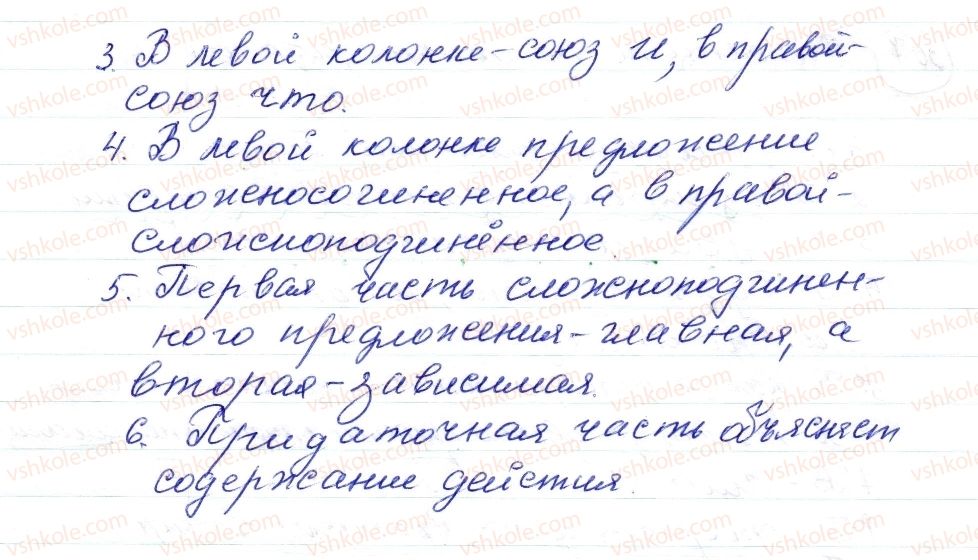 3. В левой колонке - союз и, в правой-
союз что.
4. В левой колонке предложение
сложносочиненное, а в правой-
сложноподчинённое
5. Первая часть сложноподчинен-
ного предложения - главная, а
вторая - зависимая.
6. Придаточная часть объясняет
содержание действия.